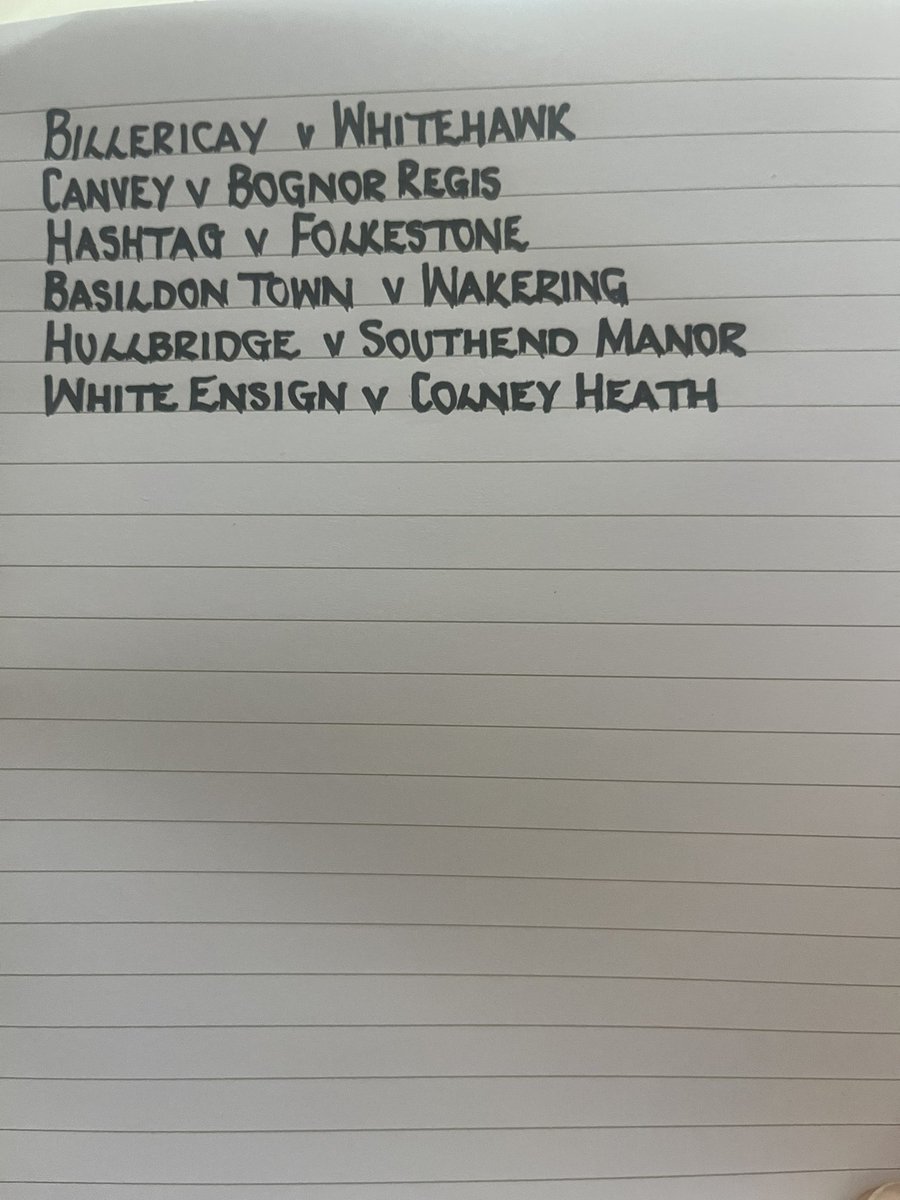 BILLERICAY v WHITEHAWK
CANVEY v BOGNOR REGIS
HASHTAG v FOLKESTONE
BASILDON TOWN v WAKERING
HULLBRIDGE v SOUTHEND MANOR
WHITE ENSIGN v COLNEY HEATH